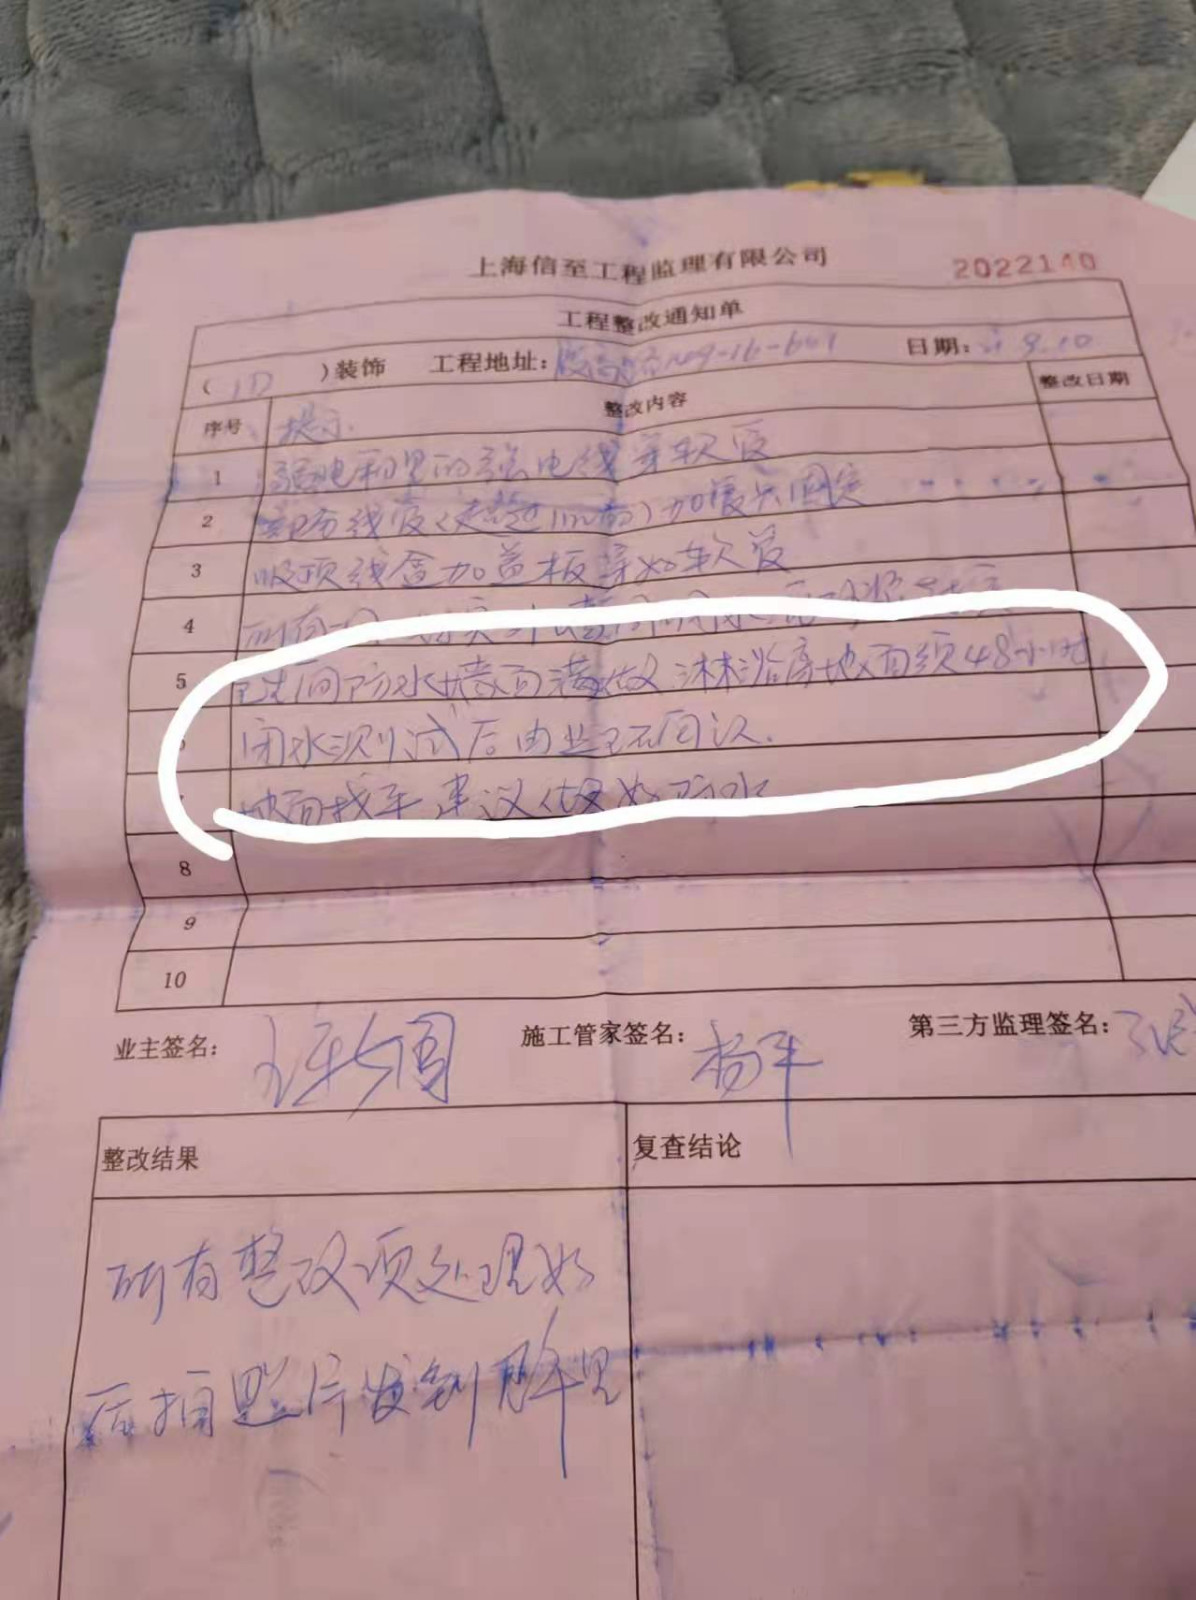 上海信至工程监理有限公司 2022140
工程整改通知单
( )装饰 工程地址: 日期: 9.10
序号 整改内容 整改日期
提示.
1 强电和里的强电线穿软管
2 部分线管(超过1m的)加展示固定
3 吸顶线盒加盖板穿好软管
4 所有
5 卫生间防水墙面满做 淋浴房地面须48小时
闭水测试后由业主确认.
地面找平建议做好防水
8
9
10
业主签名: 施工管家签名: 杨平 第三方监理签名:
整改结果 复查结论
所有整改项处理好
后拍照片发到群里